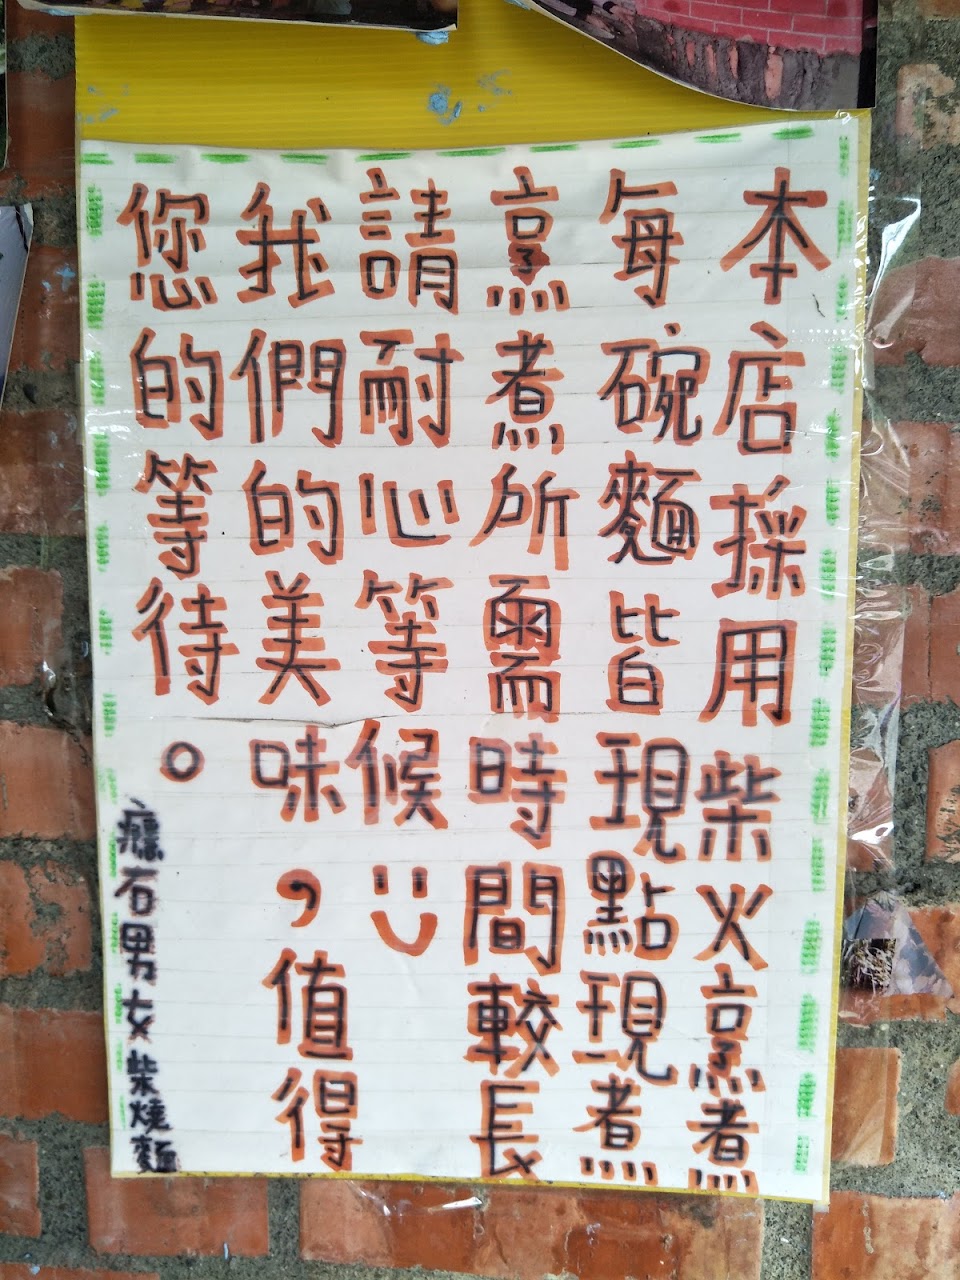 本店採用柴火烹煮
每碗麵皆現點現煮
烹煮所需時間較長
請耐心等候
我們的美味，值得
您的等待。
石男女柴燒麵